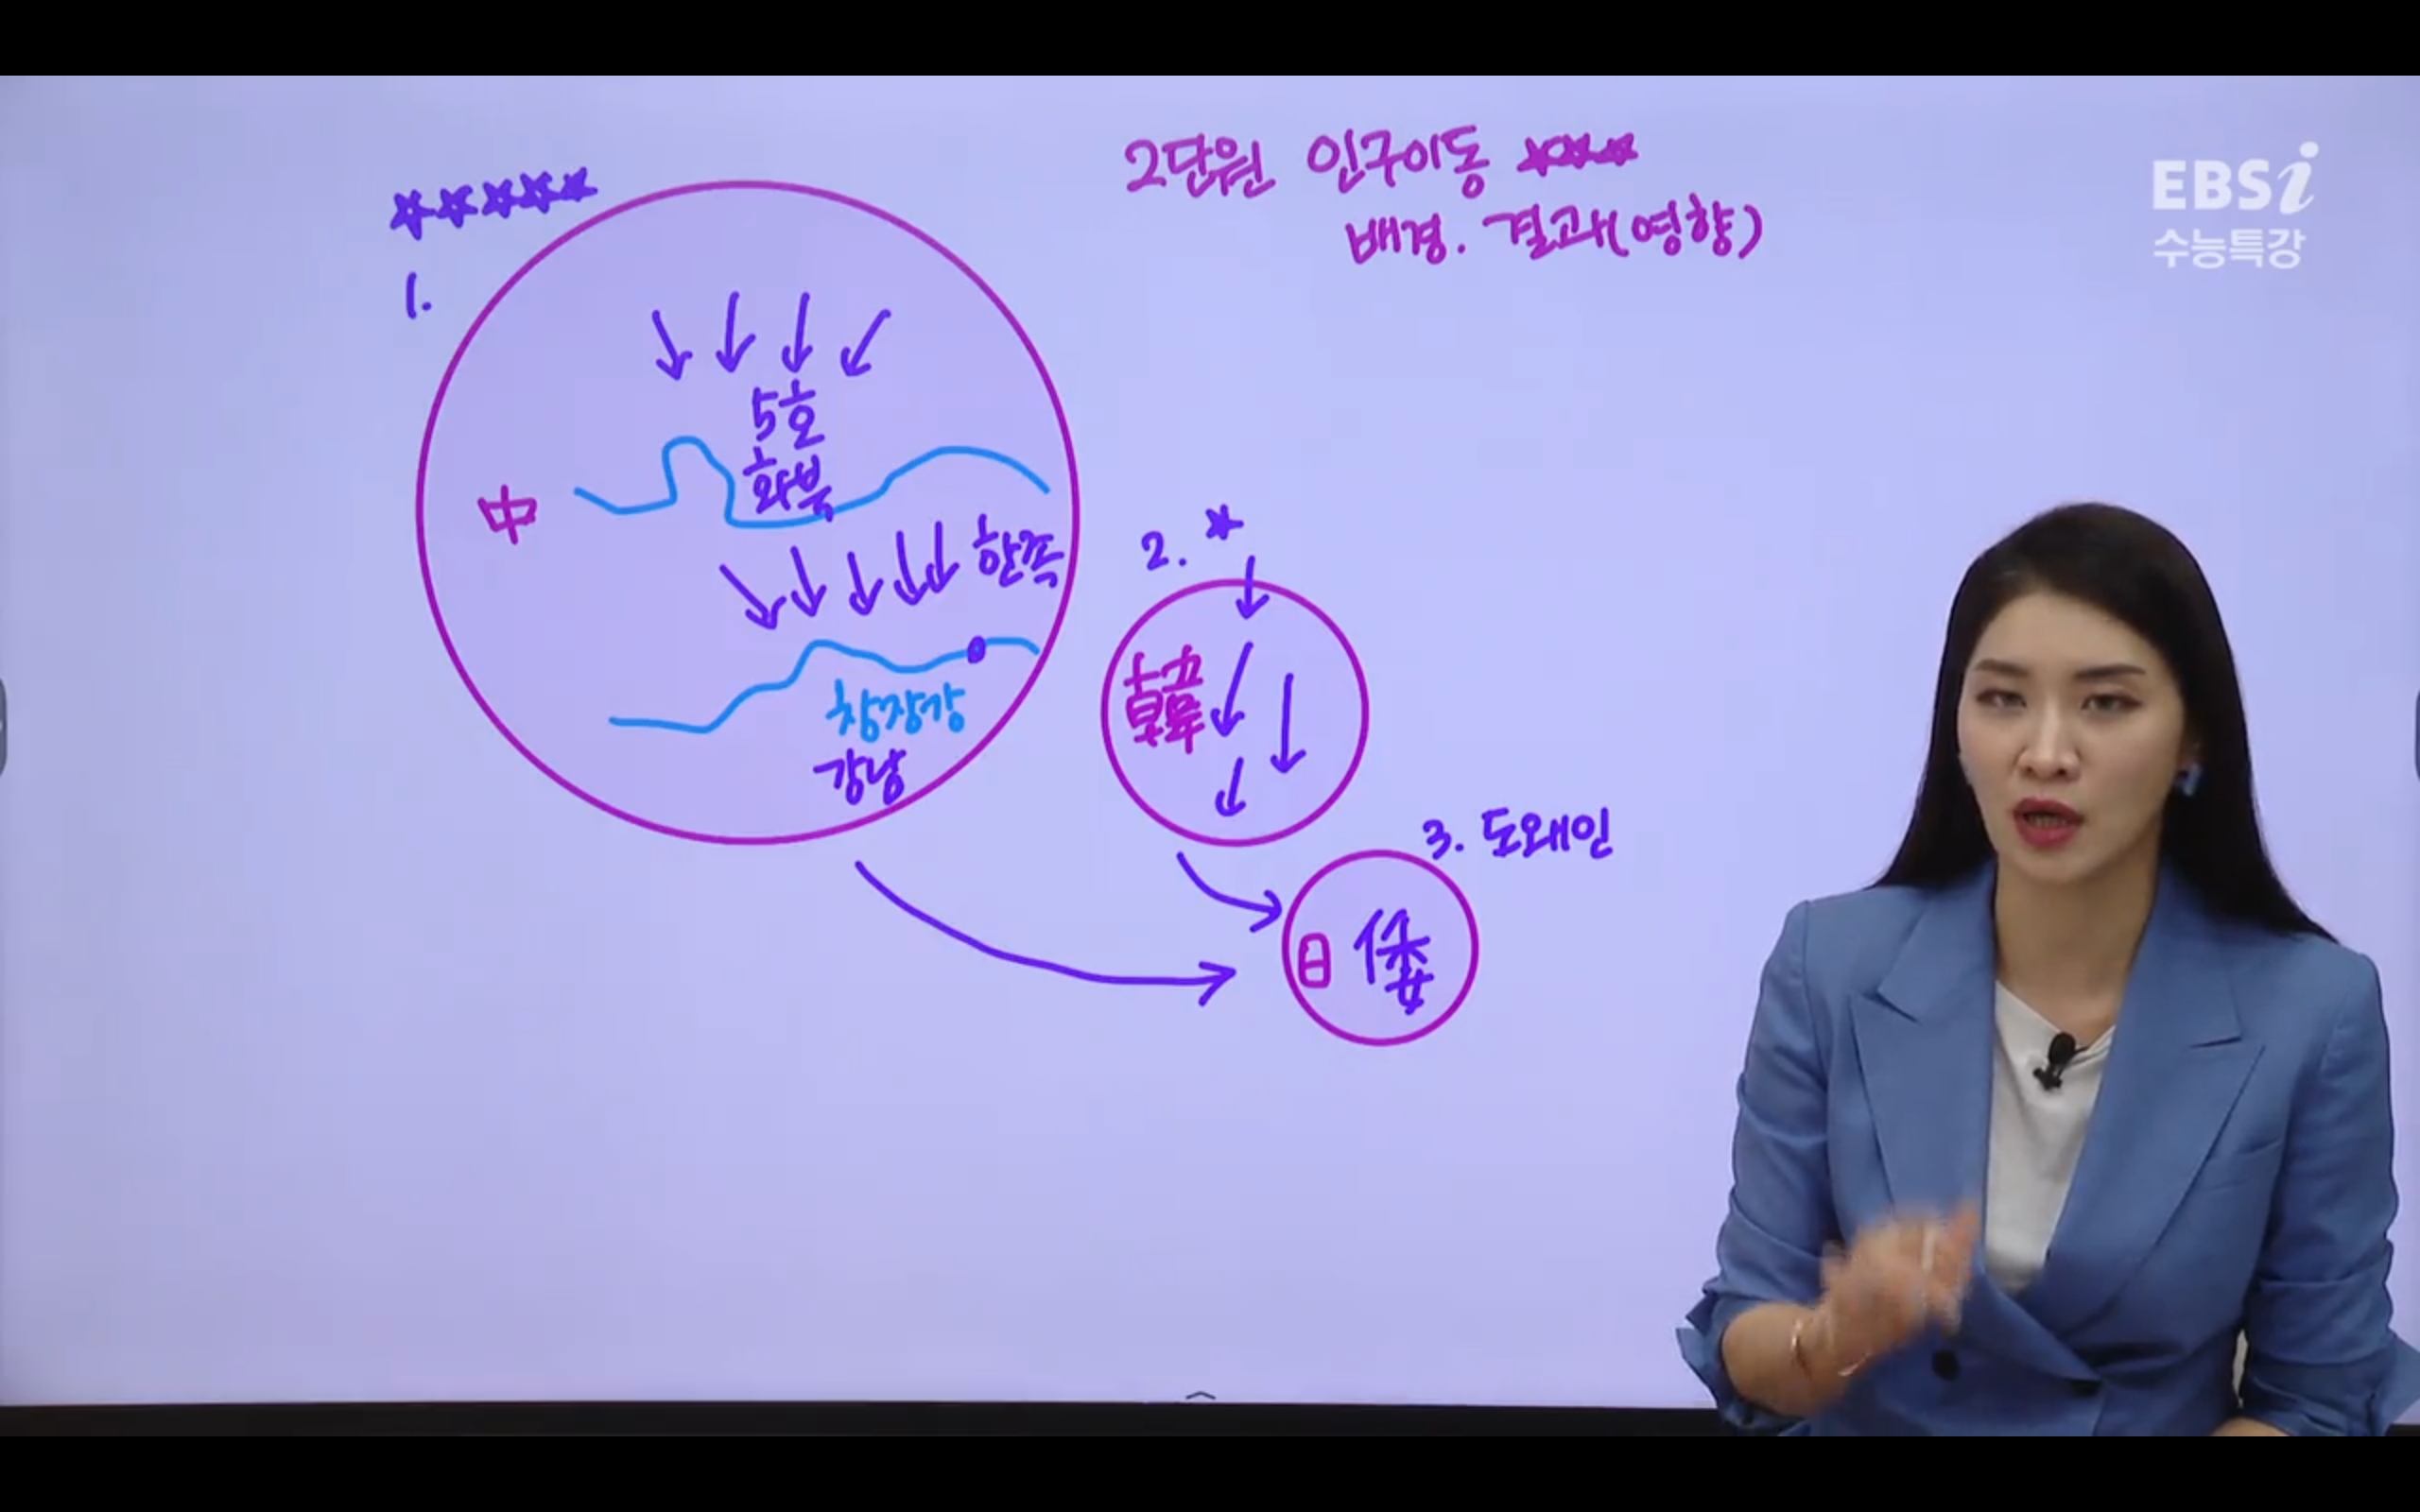 2단원 인구이동 ☆☆☆
배경. 결과(영향)
EBSi
수능특강
☆☆☆☆☆
1.
5호
화북
中
한족
창장강
강남
2. ☆
韓
3. 도왜인
日 倭